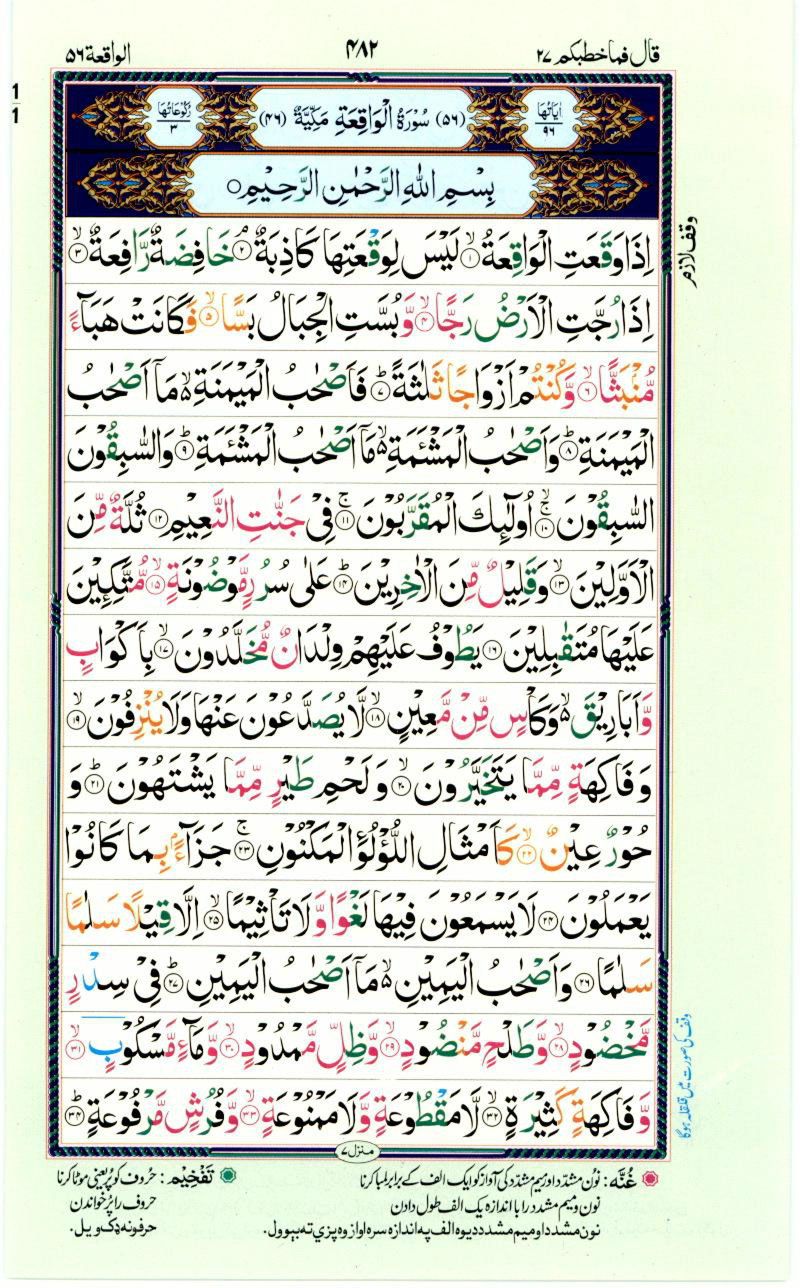 قال فما خطبكم ٢٧
۴۸۲
الواقعة ٥٦
1
1
اٰيَاتُهَا ٩٦
(٥٦) سُوْرَةُ الْوَاقِعَةِ مَكِّيَّةٌ (٤٦)
رُكُوْعَاتُهَا ٣
بِسْمِ اللّٰهِ الرَّحْمٰنِ الرَّحِيْمِ ○
وقف لازم
اِذَا وَقَعَتِ الْوَاقِعَةُ ۙ﴿١﴾ لَيْسَ لِوَقْعَتِهَا كَاذِبَةٌ ۘ﴿٢﴾ خَافِضَةٌ رَّافِعَةٌ ۙ﴿٣﴾
اِذَا رُجَّتِ الْاَرْضُ رَجًّا ۙ﴿٤﴾ وَّبُسَّتِ الْجِبَالُ بَسًّا ۙ﴿٥﴾ فَكَانَتْ هَبَآءً
مُّنْۢبَثًّا ۙ﴿٦﴾ وَّكُنْتُمْ اَزْوَاجًا ثَلٰثَةً ؕ﴿٧﴾ فَاَصْحٰبُ الْمَيْمَنَةِ ۙ۬ مَاۤ اَصْحٰبُ
الْمَيْمَنَةِ ؕ﴿٨﴾ وَاَصْحٰبُ الْمَشْـَٔمَةِ ۙ۬ مَاۤ اَصْحٰبُ الْمَشْـَٔمَةِ ؕ﴿٩﴾ وَالسّٰبِقُوْنَ
السّٰبِقُوْنَ ۚۙ﴿١٠﴾ اُولٰٓئِكَ الْمُقَرَّبُوْنَ ۚ﴿١١﴾ فِيْ جَنّٰتِ النَّعِيْمِ ﴿١٢﴾ ثُلَّةٌ مِّنَ
الْاَوَّلِيْنَ ۙ﴿١٣﴾ وَقَلِيْلٌ مِّنَ الْاٰخِرِيْنَ ؕ﴿١٤﴾ عَلٰى سُرُرٍ مَّوْضُوْنَةٍ ۙ﴿١٥﴾ مُّتَّكِـِٕيْنَ
عَلَيْهَا مُتَقٰبِلِيْنَ ﴿١٦﴾ يَطُوْفُ عَلَيْهِمْ وِلْدَانٌ مُّخَلَّدُوْنَ ۙ﴿١٧﴾ بِاَكْوَابٍ
وَّاَبَارِيْقَ ۙ۬ وَكَاْسٍ مِّنْ مَّعِيْنٍ ۙ﴿١٨﴾ لَّا يُصَدَّعُوْنَ عَنْهَا وَلَا يُنْزِفُوْنَ ۙ﴿١٩﴾
وَفَاكِهَةٍ مِّمَّا يَتَخَيَّرُوْنَ ۙ﴿٢٠﴾ وَلَحْمِ طَيْرٍ مِّمَّا يَشْتَهُوْنَ ؕ﴿٢١﴾ وَ
حُوْرٌ عِيْنٌ ۙ﴿٢٢﴾ كَاَمْثَالِ اللُّؤْلُؤِ الْمَكْنُوْنِ ۚ﴿٢٣﴾ جَزَآءًۢ بِمَا كَانُوْا
يَعْمَلُوْنَ ﴿٢٤﴾ لَا يَسْمَعُوْنَ فِيْهَا لَغْوًا وَّلَا تَاْثِيْمًا ۙ﴿٢٥﴾ اِلَّا قِيْلًا سَلٰمًا
سَلٰمًا ﴿٢٦﴾ وَاَصْحٰبُ الْيَمِيْنِ ۙ۬ مَاۤ اَصْحٰبُ الْيَمِيْنِ ؕ﴿٢٧﴾ فِيْ سِدْرٍ
مَّخْضُوْدٍ ۙ﴿٢٨﴾ وَّطَلْحٍ مَّنْضُوْدٍ ۙ﴿٢٩﴾ وَّظِلٍّ مَّمْدُوْدٍ ۙ﴿٣٠﴾ وَّمَآءٍ مَّسْكُوْبٍ ۙ﴿٣١﴾
وَّفَاكِهَةٍ كَثِيْرَةٍ ۙ﴿٣٢﴾ لَّا مَقْطُوْعَةٍ وَّلَا مَمْنُوْعَةٍ ۙ﴿٣٣﴾ وَّفُرُشٍ مَّرْفُوْعَةٍ ؕ﴿٣٤﴾
وقف کی صورت میں قلقلہ ہوگا
منزل ٧
غُنَّه: نون مشدّد اور میم مشدّد کی آواز کو ایک الف کے برابر لمبا کرنا
نون و میم مشدد را با اندازه یک الف طول دادن
نون مشدد او میم مشدد ددیوه الف په اندازه سره اواز وه پزي ته بیوول.
تَفْخِیْم: حروف کو پُر یعنی موٹا کرنا
حروف را پُر خواندن
حرفونه ډک ویل.